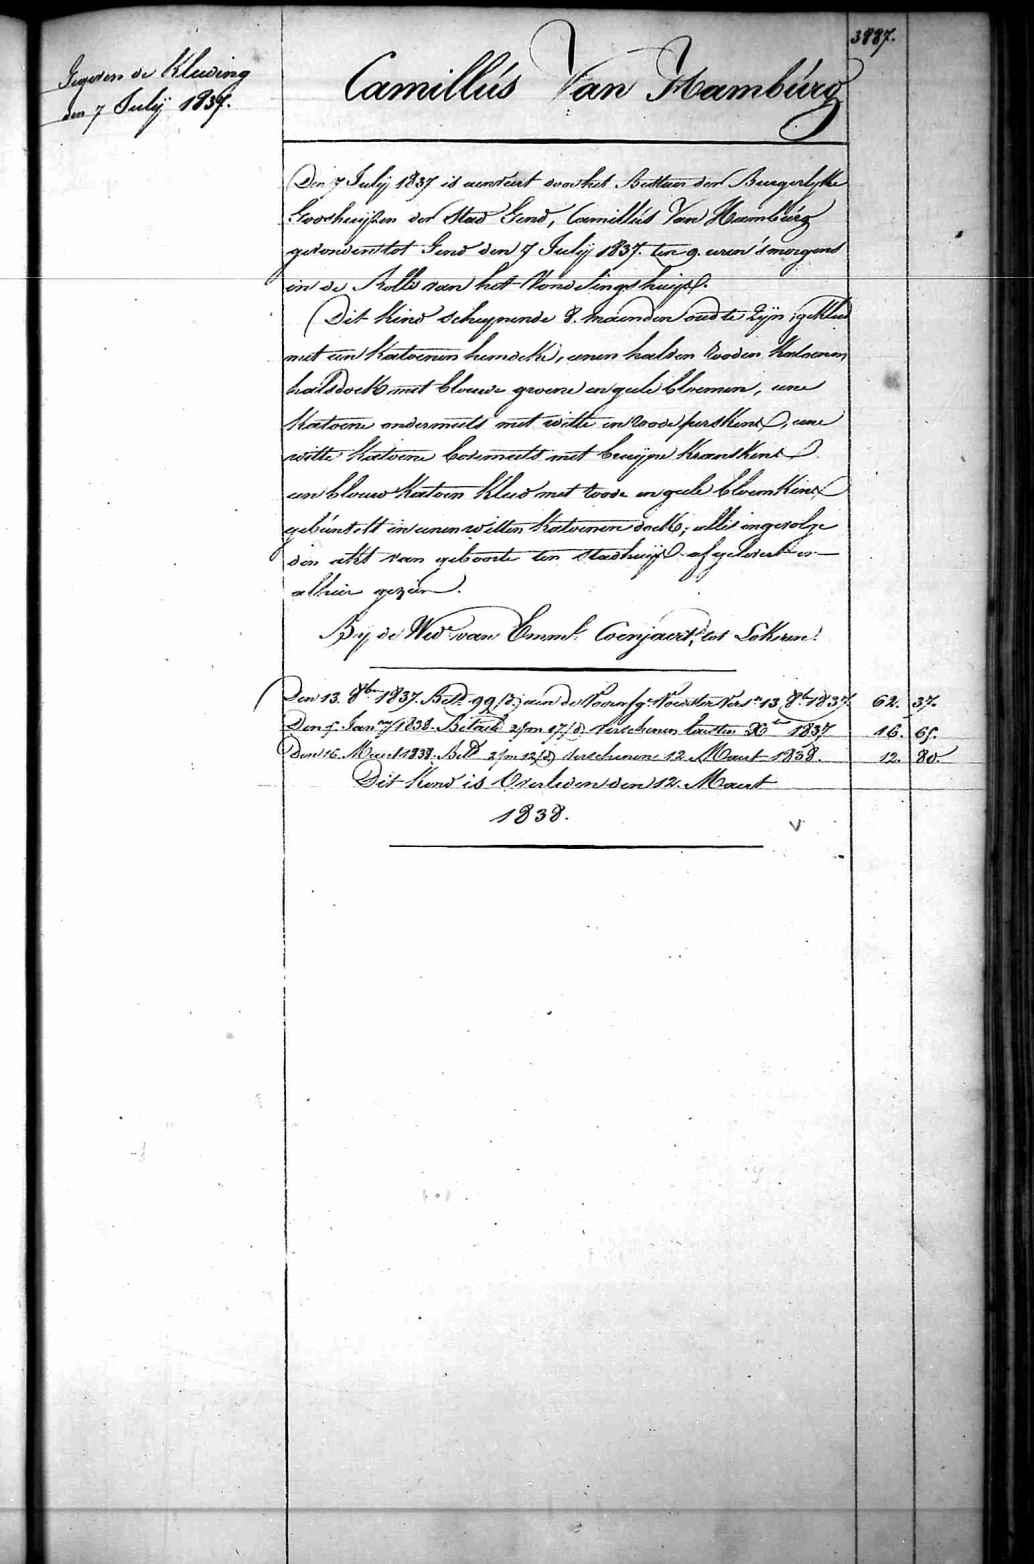 3887.
Gegeven de Kleeding
den 7 Julij 1837.
Camillús Van Hambúrg
Den 7 Julij 1837 is aenveert door het Bestuer der Burgerlyke
Godshuijsen der Stad Gend, Camillús Van Hambúrg
gevonden tot Gend den 7 Julij 1837. ten 9. uren 's morgens
in de Rolle van het Vondelingshuijs.
Dit Kind scheynende 8. maenden oud te Zijn, gekleed
met een Katoenen hemdeke, eenen halven Rooden Katoenen
halsdoek met blouwe groene en geele bloemen, eene
Katoene ondermuts met witte en roode perskens, eene
witte Katoene bovemuts met bruijne Kranskens
een blouw Katoen Kleed met roode en geele bloemkens
gebúnselt in eenen witten Katoenen doek, alles ingevolge
den akt van geboorte ten stadhuijse afgelevert en
alhier gezien.
Bij de Wed.e van Emml. Coenjaerts, tot Lokeren.
Den 13. 8ber 1837. Betd. 99 (d.) aen de Voorsz. Voester Vers.n 13. 8b. 1837. 62. 37.
Den 5 Janry 1838. Betaelt 2/m 17/d Verschenen laesten Xber 1837 16. 65.
Den 16. Maert 1838. Betd 2/m 12/d Verschenen 12 Maert 1838. 12. 80.
Dit Kind is Overleden den 12. Maert
1838.